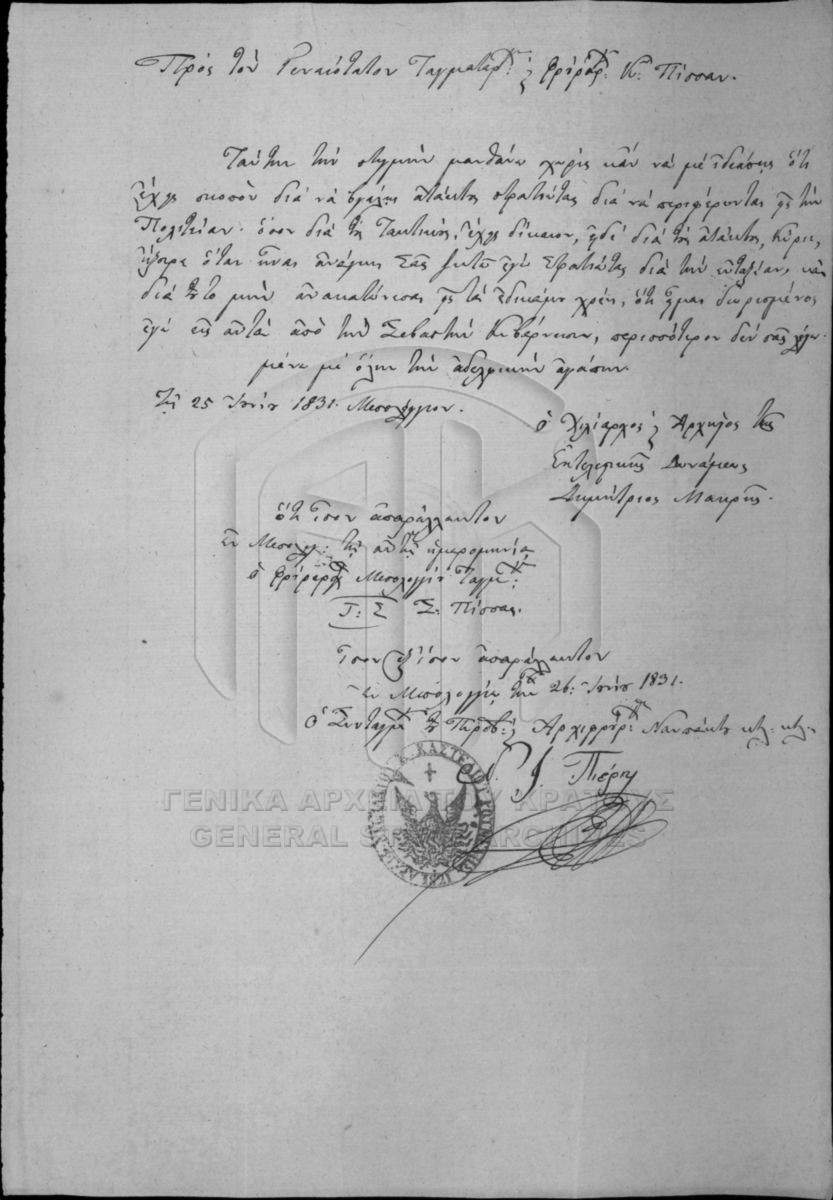 Πρὸς τὸν Γενναιότατον Ταγματάρχ: & Φρούραρχ: Κον: Πίσσαν.
Ταύτην τὴν στιγμὴν μανθάνω χωρὶς κἂν νὰ μὲ ἰδεάσῃς ὅτι
ἔχῃς σκοπὸν διὰ νὰ βγάλῃς ἀτάκτους στρατιώτας διὰ νὰ περιφέρωνται εἰς τὴν
Πολιτείαν. ὅσον διὰ τῆς Τακτικῆς, ἔχῃς δίκαιον, διὰ τῆς ἀτάκτης, Κύριε,
ὅταν εἶναι ἀνάγκη Σᾶς ἐγὼ Στρατιώτας διὰ τὴν εὐταξίαν, καὶ
διὰ τοῦτο μὴν ἀνακατώνεσαι εἰς τὰ ἐδικά μου χρέη, ὅτι εἶμαι διωρισμένος
ἐγὼ εἰς αὐτὰ ἀπὸ τὴν Σεβαστὴν Κυβέρνησιν, περισσότερον δὲν σᾶς λέγω.
μένω μὲ ὅλην τὴν ἀδελφικὴν ἀγάπην.
Τῇ 25 Ἰουνίου 1831. Μεσολόγγιον.
ὁ Χιλίαρχος & Ἀρχηγὸς τῆς
Ἐκτελεστικῆς Δυνάμεως
Δημήτριος Μακρῆς.
ὅτι ἴσον ἀπαράλλακτον
ἐν Μεσολογ: τῇ αὐτῇ ἡμερομηνίᾳ
ὁ Φρούραρχ Μεσολογγίου Ταγμ:
Τ: Σ Σ: Πίσσας.
Ἴσον ἐξ ἴσου ἀπαράλλακτον
ἐν Μεσολογγίῳ τὴν 26: Ἰουνίου 1831.
ὁ Συνταγμ τοῦ Πυροβ: & Ἀρχιφρούρ: Ναυπάκτου κτλ. κτλ.
Ν. Γ. Πιέρης
ΓΕΝΙΚΑ ΑΡΧΕΙΑ ΤΟΥ ΚΡΑΤΟΥΣ
GENERAL STATE ARCHIVES